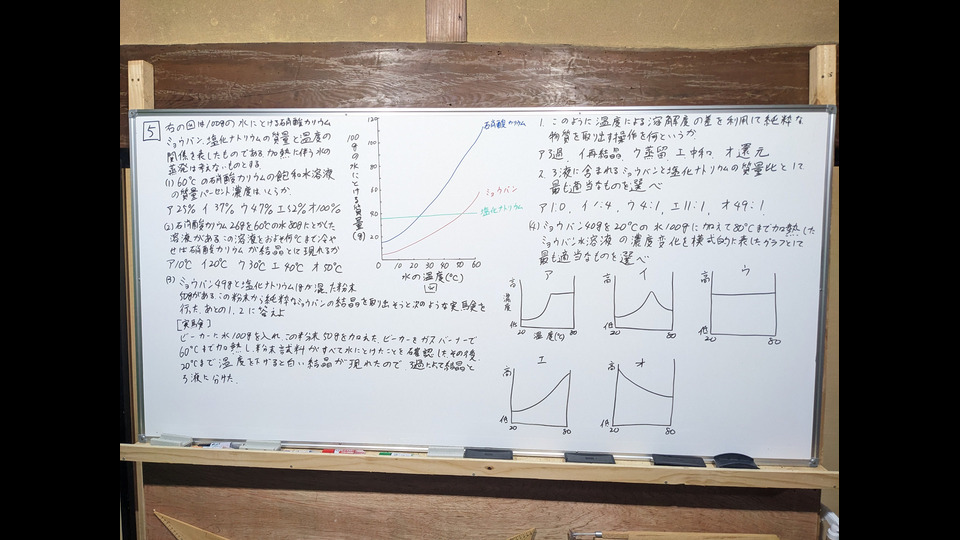 5 右の図は100gの水にとける硝酸カリウム
ミョウバン、塩化ナトリウムの質量と温度の
関係を表したものである。加熱に伴う水の
蒸発は考えないものとする。
(1) 60℃の硝酸カリウムの飽和水溶液
の質量パーセント濃度はいくらか
ア25% イ37% ウ47% エ52% オ100%
(2) 硝酸カリウム26gを60℃の水80gにとかした
溶液がある。この溶液をおよそ何℃まで冷や
せば硝酸カリウムが結晶として現れるか
ア10℃ イ20℃ ウ30℃ エ40℃ オ50℃
(3) ミョウバン49gと塩化ナトリウム1gが混じた粉末
50gがある。この粉末から純粋なミョウバンの結晶を取り出そうと次のような実験を
行った。あとの1、2に答えよ
[実験]
ビーカーに水100gを入れ、この粉末50gを加えた。ビーカーをガスバーナーで
60℃まで加熱し、粉末試料がすべて水にとけたことを確認した。その後、
20℃まで温度を下げると白い結晶が現れたので、ろ過によって結晶と
ろ液に分けた。
100gの水にとける質量(g)
120
100
80
60
40
20
0 10 20 30 40 50 60
水の温度(℃)
図
硝酸カリウム
ミョウバン
塩化ナトリウム
1. このように温度による溶解度の差を利用して純粋な
物質を取り出す操作を何というか
アろ過、イ再結晶 ウ蒸留 エ中和 オ還元
2. ろ液に含まれるミョウバンと塩化ナトリウムの質量比として
最も適当なものを選べ
ア1:0、イ1:4、ウ4:1、エ11:1、オ49:1
(4) ミョウバン40gを20℃の水100gに加えて80℃まで加熱した
ミョウバン水溶液の濃度変化を模式的に表したグラフとして
最も適当なものを選べ
ア
高
濃度
低
20 80
温度(℃)
イ
高
低
20 80
ウ
高
低
20 80
エ
高
低
20 80
オ
高
低
20 80